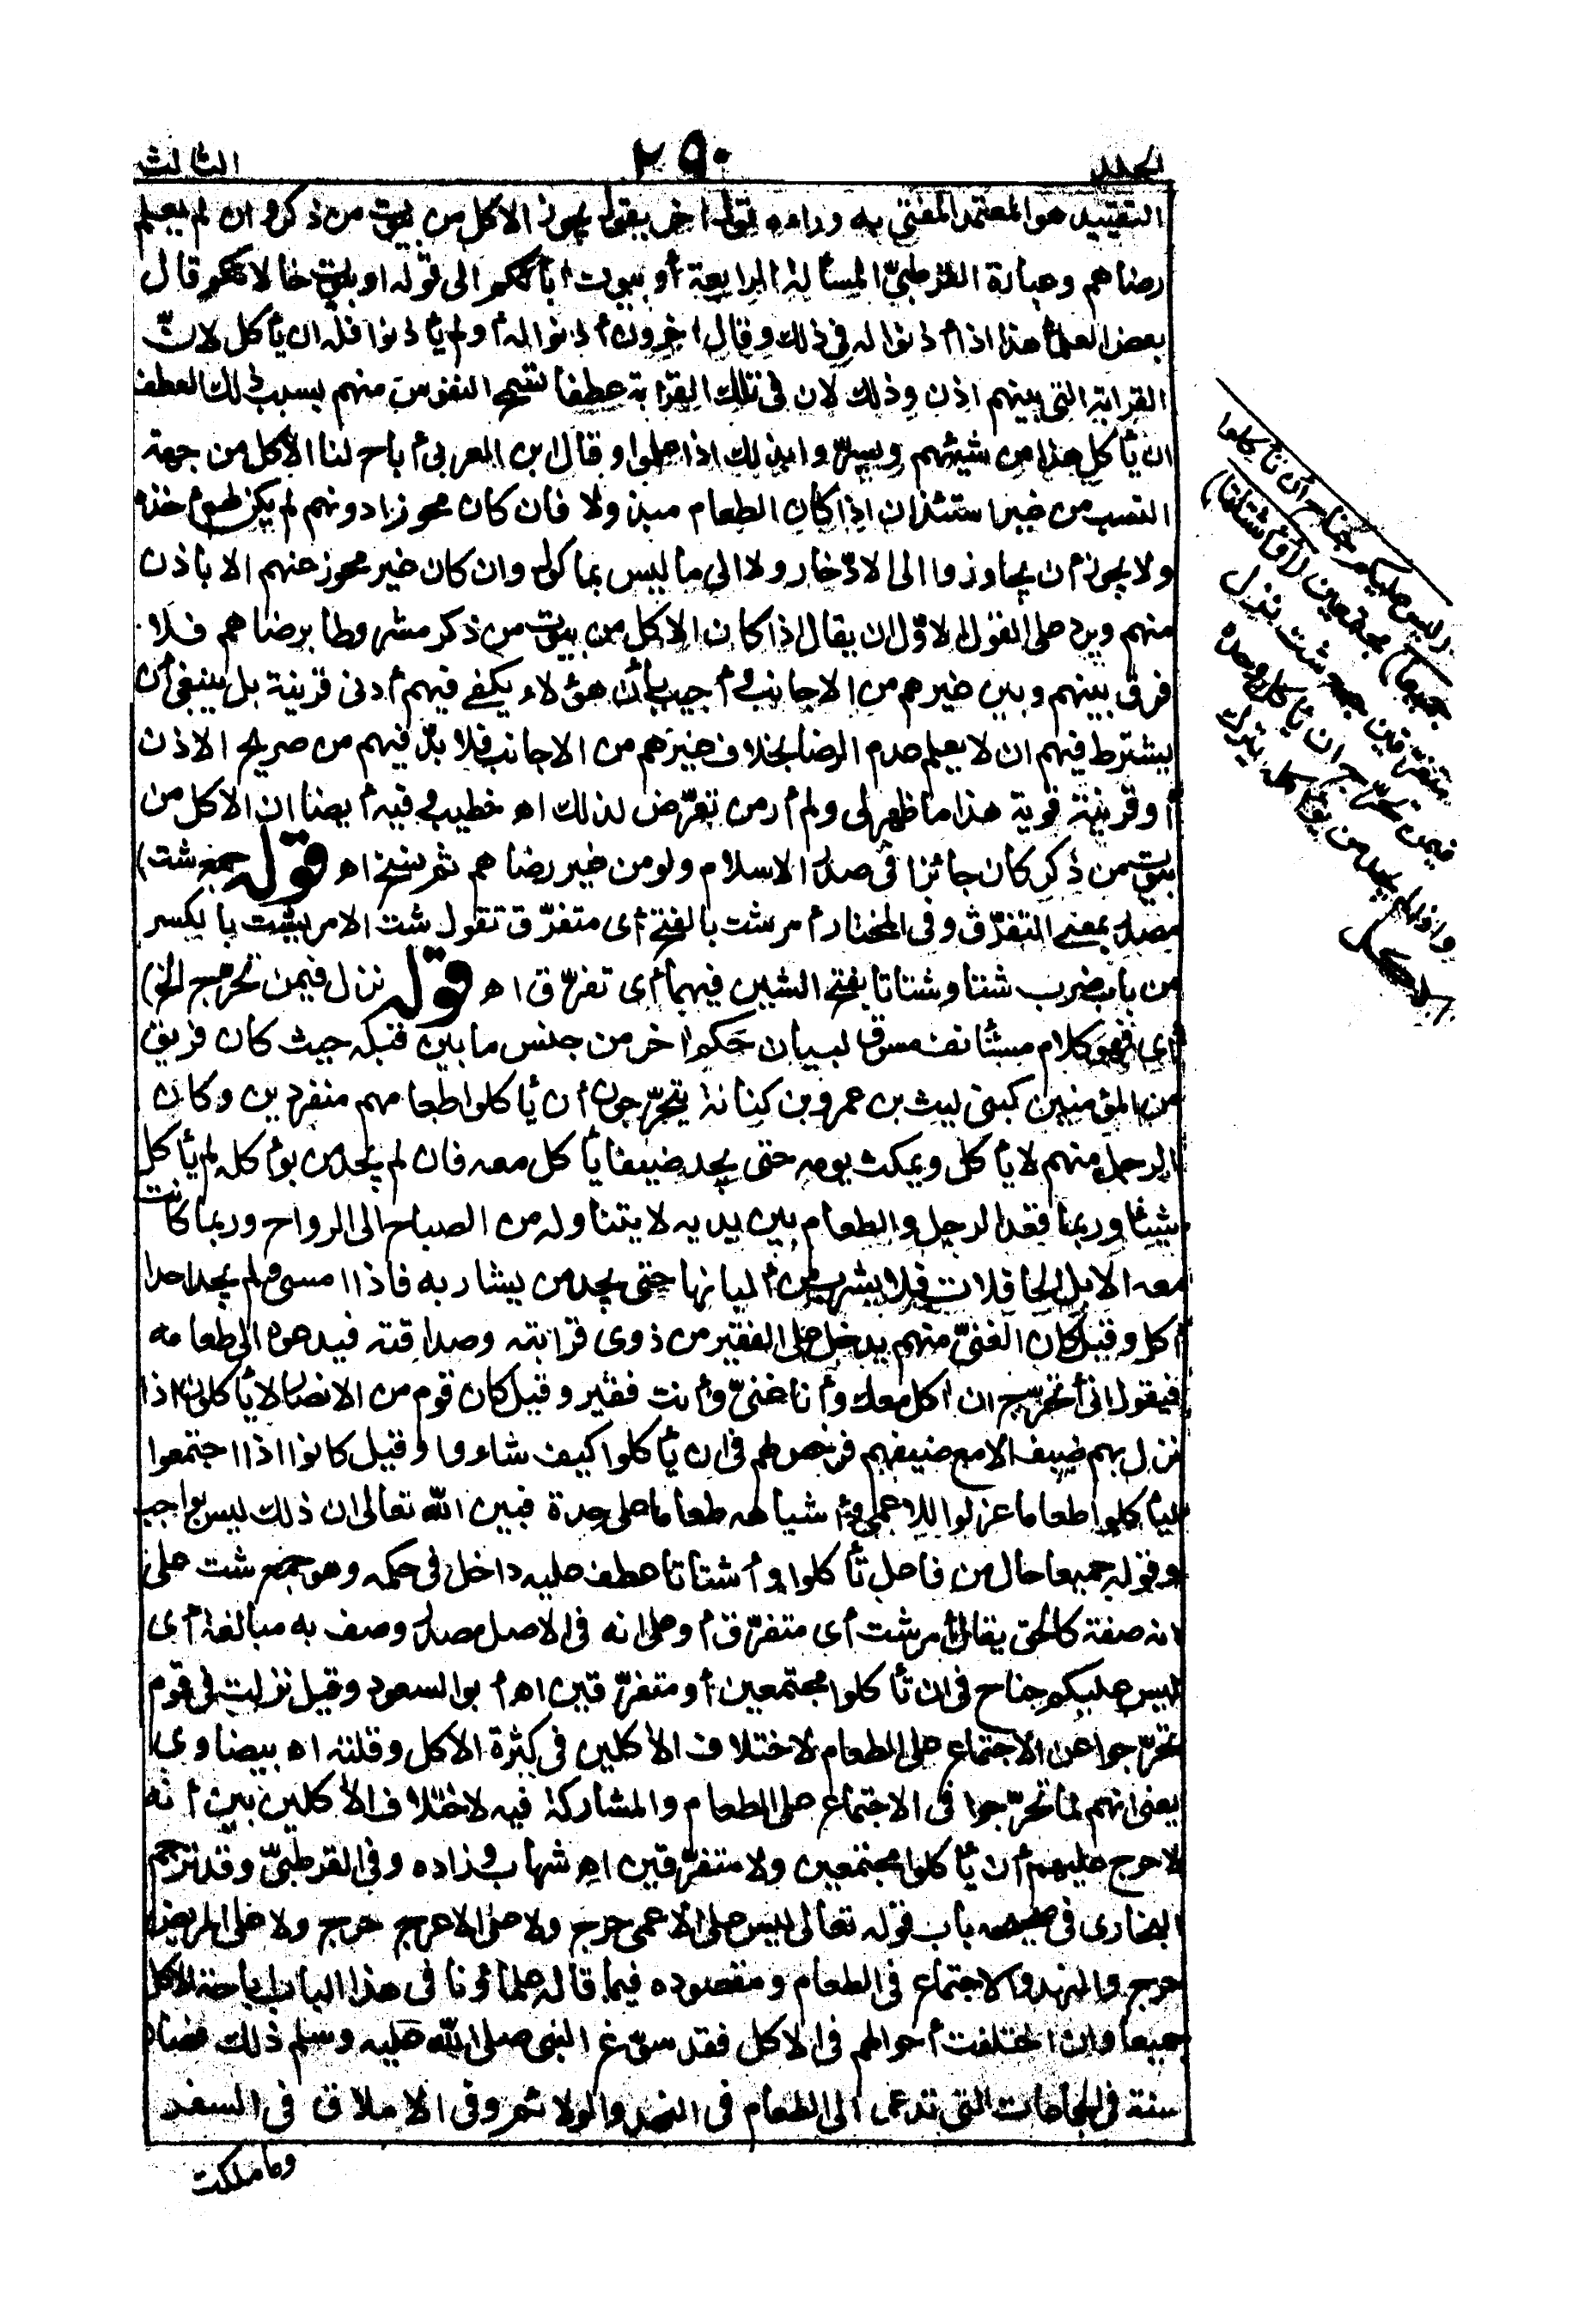 المجلد
٢٩٠
الثالث
التقييد هو المعتمد المفتى به وراءه قول اخر يقول يجوز الاكل من بيوت من ذكر وان لم يعلم
رضاهم وعبارة القرطبىّ المسألة الرابعة أو بيوت اٰبائكم الى قوله او بيوت خالاتكم قال
بعض العلماء هذا اذا أذنوا له فى ذلك وقال اٰخرون أذنوا له أو لم يأذنوا فله ان يأكل لانّ
القرابة التى بينهم اذن وذلك لان فى تلك القرابة عطفا تسمح النفوس منهم بسبب ذلك العطف
ان يأكل هذا من شيئهم ويسرّوا بذلك اذا علموا وقال ابن العربى أباح لنا الاكل من جهة
النسب من غير استئذان اذا كان الطعام مبذولا فان كان محوزا دونهم لم يكن لهم أخذه
ولا يجوز أن يجاوزوا الى الادّخار ولا الى ما ليس بمأكول وان كان غير محوز عنهم الا باذن
منهم ويرد على القول الاوّل ان يقال اذا كان الاكل من بيوت من ذكر مشروطا برضاهم فلا
فرق بينهم وبين غيرهم من الاجانب وأجيب بأن هؤلاء يكفى فيهم أدنى قرينة بل ينبغى أن
يشترط فيهم ان لا يعلم عدم الرضا بخلاف غيرهم من الاجانب فلا بدّ فيهم من صريح الاذن
أو قرينة قوية هذا ما ظهر لى ولم أر من تعرّض لذلك اه خطيب وفيه أيضا ان الاكل من
بيوت من ذكر كان جائزا فى صدر الاسلام ولو من غير رضاهم ثم نسخ اه قوله جمع شت)
مصدر بمعنى التفرّق وفى المختار أمر شت بالفتح أى متفرّق تقول شت الامر يشت بالكسر
من باب ضرب شتا وشتاتا بفتح الشين فيهما أى تفرّق اه قوله نزل فيمن تحرّج الخ)
أى فهو كلام مستأنف مسوق لبيان حكم اٰخر من جنس ما بين قبله حيث كان فريق
من المؤمنين كبنى ليث بن عمرو بن كنانة يتحرّجون أن يأكلوا طعامهم منفردين وكان
الرجل منهم لا يأكل ويمكث يومه حتى يجد ضيفا يأكل معه فان لم يجد من يؤاكله لم يأكل
شيئا وربما قعد الرجل والطعام بين يديه لا يتناوله من الصباح الى الرواح وربما كانت
معه الابل الحافلات فلا يشرب من ألبانها حتى يجد من يشاربه فاذا امسى ولم يجد احدا
أكل وقيل كان الغنىّ منهم يدخل على الفقير من ذوى قرابته وصداقته فيدعوه الى طعامه
فيقول انى أتحرّج ان اٰكل معك وأنا غنىّ وأنت فقير وقيل كان قوم من الانصار لا يأكلون اذا
نزل بهم ضيف الا مع ضيفهم فرخص لهم فى ان يأكلوا كيف شاءوا وقيل كانوا اذا اجتمعوا
ليأكلوا طعاما عزلوا للاعمى وأشباهه طعاما على حدة فبين الله تعالى ان ذلك ليس بواجب
وقوله جميعا حال من فاعل تأكلوا وأشتاتا عطف عليه داخل فى حكمه وهو جمع شت على
انه صفة كالحق يقال أمر شت أى متفرّق أو على انه فى الاصل مصدر وصف به مبالغة أى
ليس عليكم جناح فى ان تأكلوا مجتمعين أو متفرّقين اه أبو السعود وقيل نزلت فى قوم
تحرّجوا عن الاجتماع على الطعام لاختلاف الاٰكلين فى كثرة الاكل وقلته اه بيضاوى
يعنى انهم لما تحرّجوا فى الاجتماع على الطعام والمشاركة فيه لاختلاف الاٰكلين بين أنه
لا حرج عليهم أن يأكلوا مجتمعين ولا متفرّقين اه شهاب وزاده وفى القرطبىّ وقد ترجم
البخارى فى صحيحه باب قوله تعالى ليس على الاعمى حرج ولا على الاعرج حرج ولا على المريض
حرج والنهد والاجتماع فى الطعام ومقصوده فيما قاله علماؤنا فى هذا الباب اباحة الاكل
جميعا وان اختلفت أحوالهم فى الاكل فقد سوّغ النبى صلى الله عليه وسلم ذلك فصار
سنة فى الجماعات التى تدعى الى الطعام فى النهد والولائم وفى الاملاق فى السفر
وما ملكت
(ليس عليكم جناح أن تأكلوا
جميعا) مجتمعين (أو أشتاتا)
متفرّقين جمع شت نزل
فيمن تحرّج ان يأكل وحده
واذا لم يجد من يؤاكله يترك
الاكل